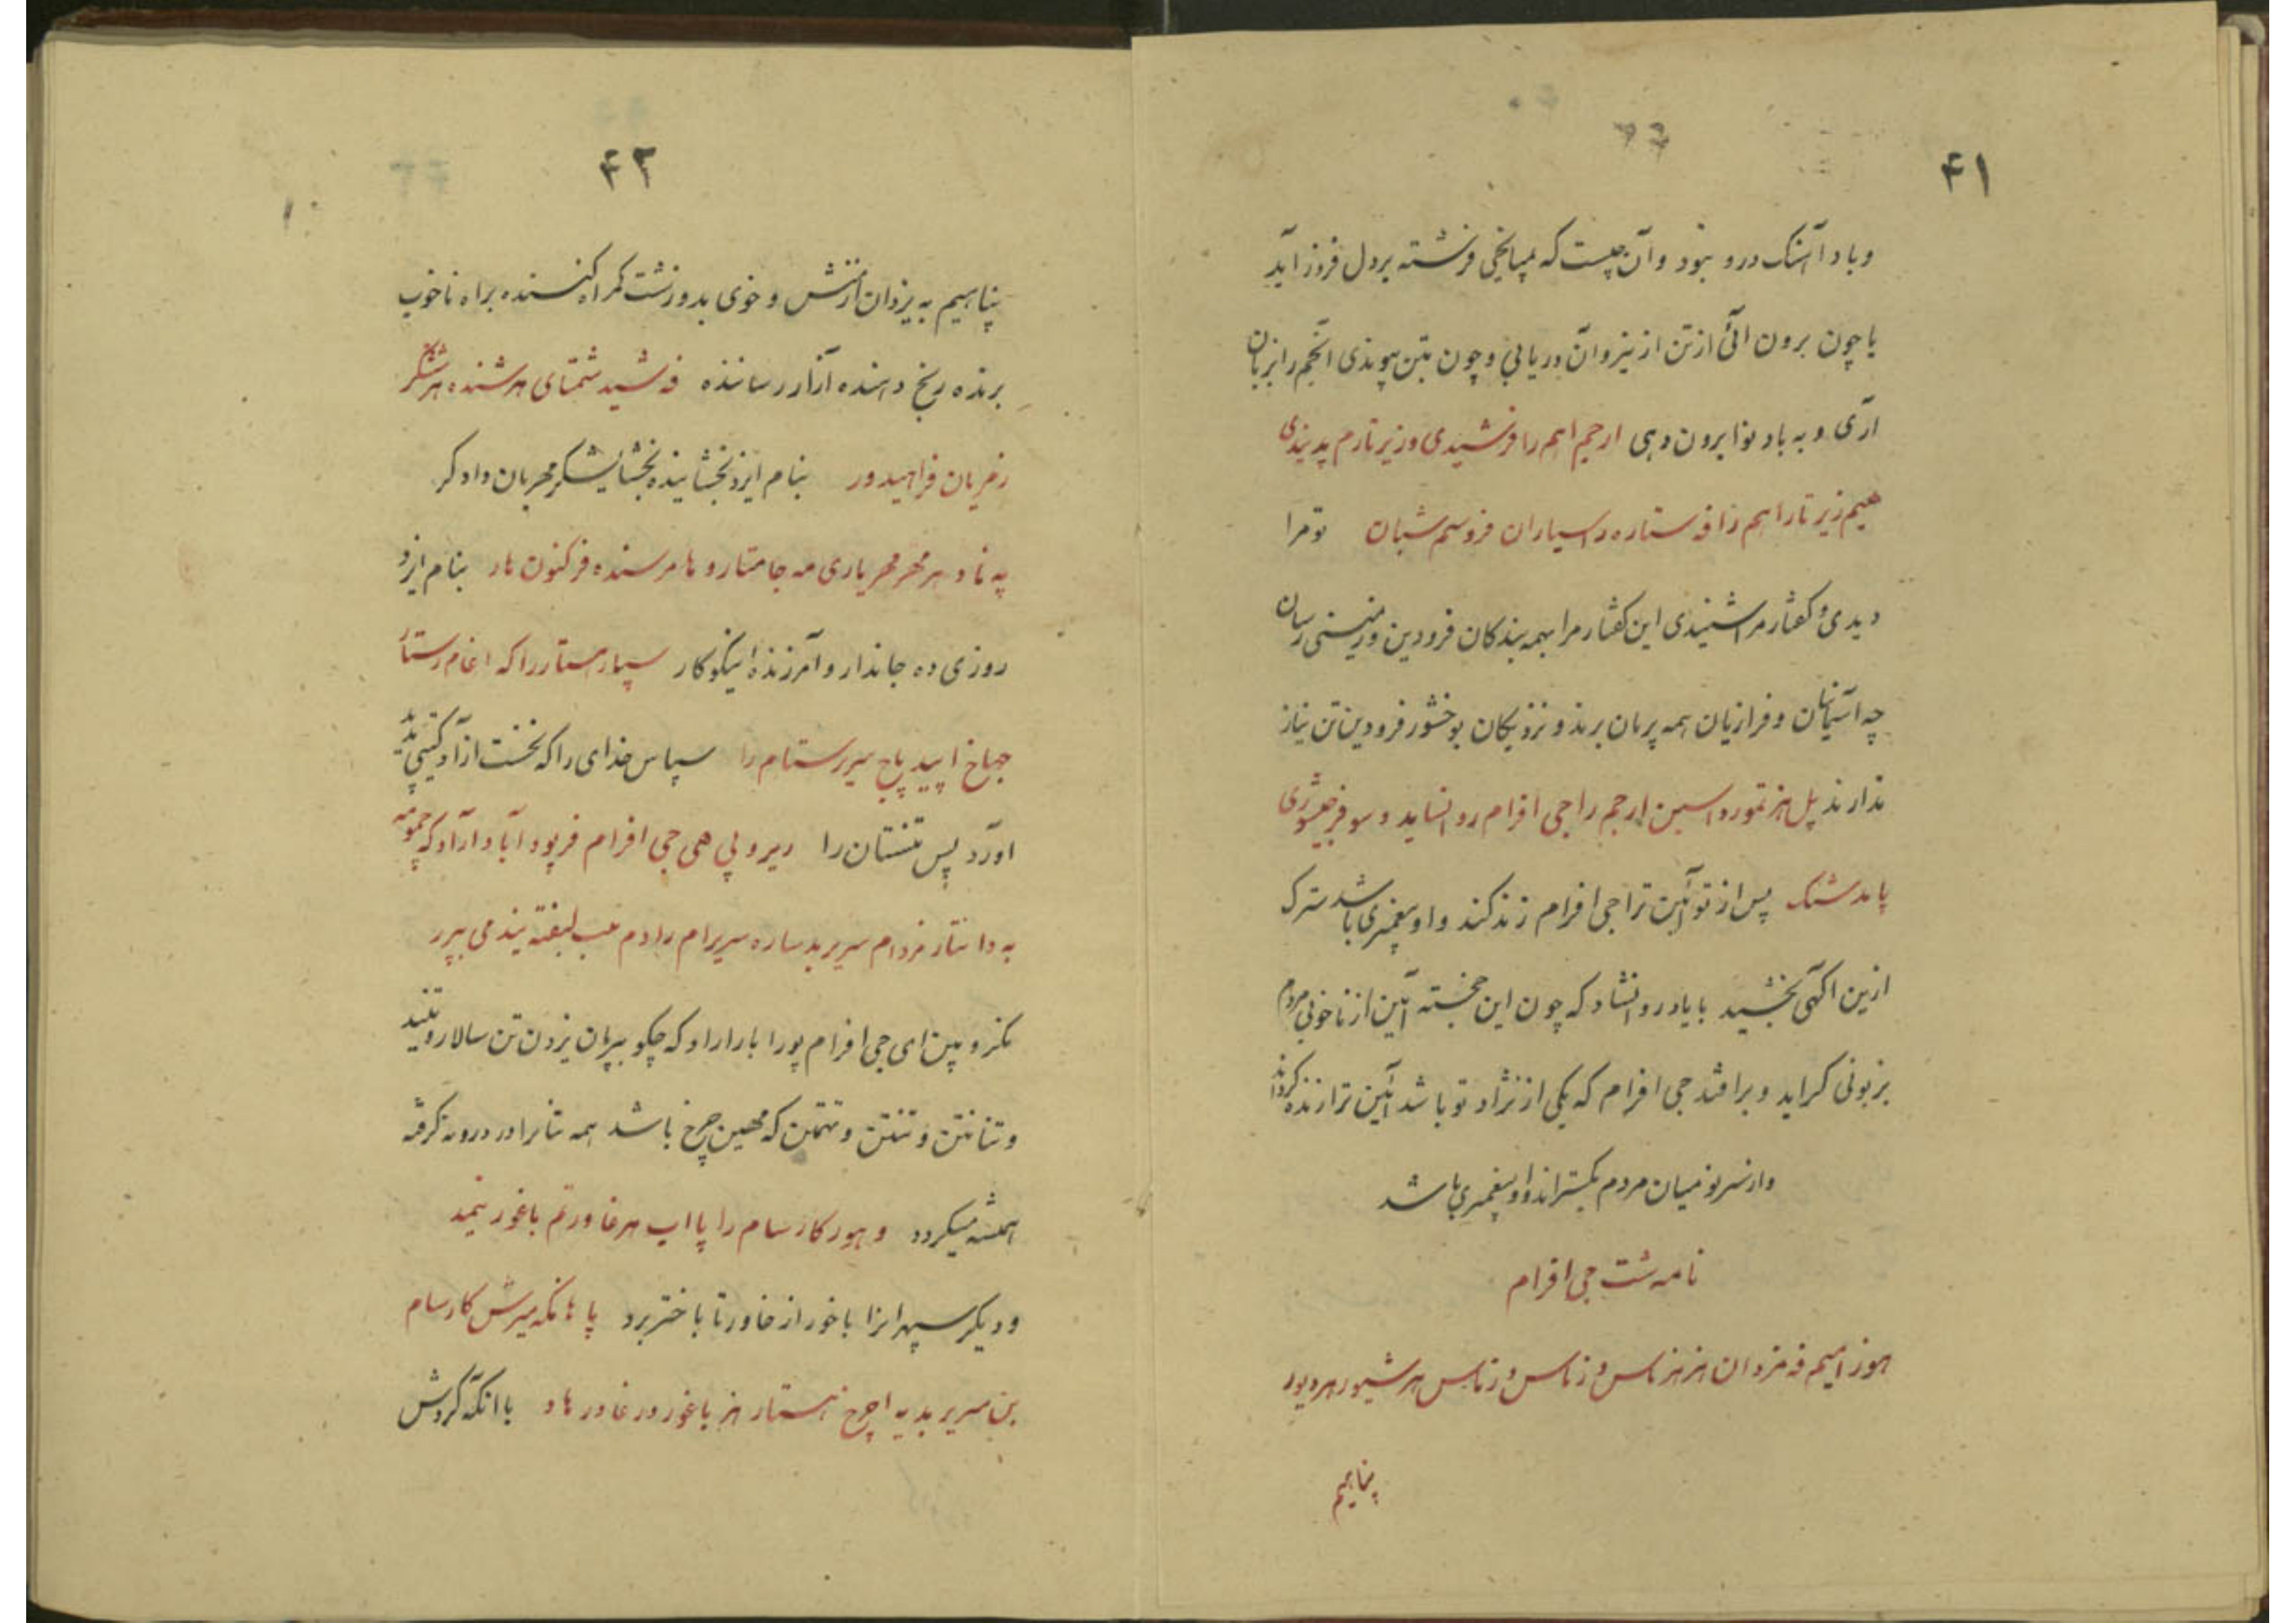 ۴۱
وباد آهنک درو نبود وآن چیست که بمیانجی فرشته بردل فرود آید
یا چون برون آئی ازتن از نیز وآن دریابی وچون بتن پیوندی آنجم را بزبان
آری و به باد نوا برون دهی ارجم اهم را فرشیدی وزیر تارم پدیندی
هیم زیر تار اهم زا فه ستاره داسیاران فروسم شبان تو مرا
دیدی و گفتار مرا شنیدی این گفتار مرا بهمه بندکان فرودین وزمینی رسان
چه آسمانیان و فرازیان همه پرمان برند و نزدیکان بوخشور فرودین تن نیاز
ندارند پل هز تموره اسین ارجم را جی افرام روانساید و سو فرجیشوری
پامدشنک پس از تو آئین ترا جی افرام زنده کند و او پیغمبری باشد سترک
ازین اکهی بخشید بایاد روانشاد که چون این خجسته آئین از ناخوبی مردم
بزبونی کراید و برافتد جی افرام که یکی از نژاد تو باشد آئین ترا زنده کرداند
وازسرنو میان مردم بکستراند واو پیغمبری باشد
نامه شت جی افرام
هوزامیم فه مزدان هز هزماس وزماس هرشیور هردیور
پناهیم
۴۲
پناهیم به یزدان ازمنش وخوی بد وزشت کمراه کننده براه ناخوب
برنده رنج دهنده آزار رساننده فه شید شمتای هرشنده هرششکر
زمربان فراهیدور بنام ایزد بخشاینده بخشایشکر مهربان دادکر
په ناد هر مهر مهریاری مه جامتار و هامرسنده فرکنون هار بنام ایزد
روزی ده جاندار و آمرزنده نیکوکار سپارمستار را که اغام رستار
جهاخ اپید پاج سیرستام را سپاس خدای را که نخست آزاد کیتی پدید
آورد پس تنستان را دیر و لی هی جی افرام فرپود آباد آراد که جموه
به دانتار مزدام سریر بد ساره سریرام رادم
نکر وبین ای جی افرام پور آباد آراد که چکو بپرمان یزدان تن سالار و تنبد
وتنانتن وتنتن وتهمتن که مهین چرخ باشد همه تنانرا در درونه گرفته
همیشه میکردد و هورکارسام را پا اب هرغاور تم باغور نیمد
و دیکر سپهرانرا با خور از خاور تا باختر برد پا هانکه میرش کارسام
بن سریر بد په اچرخ هستار هز باغور درغاور هاد با انکه گردش